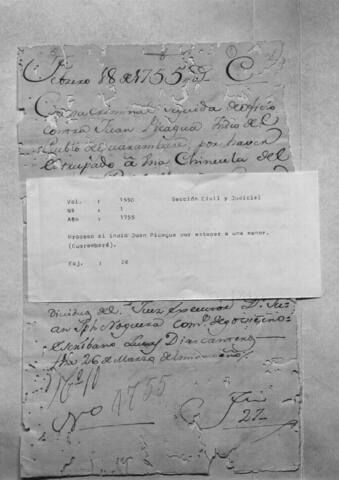 Febrero 18 de 1755 as
Causa criminal seguida de oficio
contra Juan Picagua Indio del
Pueblo de Guarambare, por haver
estrupado a una Chinuela del
Vol. : 1550 Sección Civil y Judicial
Nº : 1
Año : 1755
Proceso al indio Juan Picagua por estupar a una menor.
(Guarambaré).
Foj. : 26
del Juez Dn Ju-
an Jph Noguera
escribano Luis Dias
26 de Marzo
Nº 10
No 1755
22